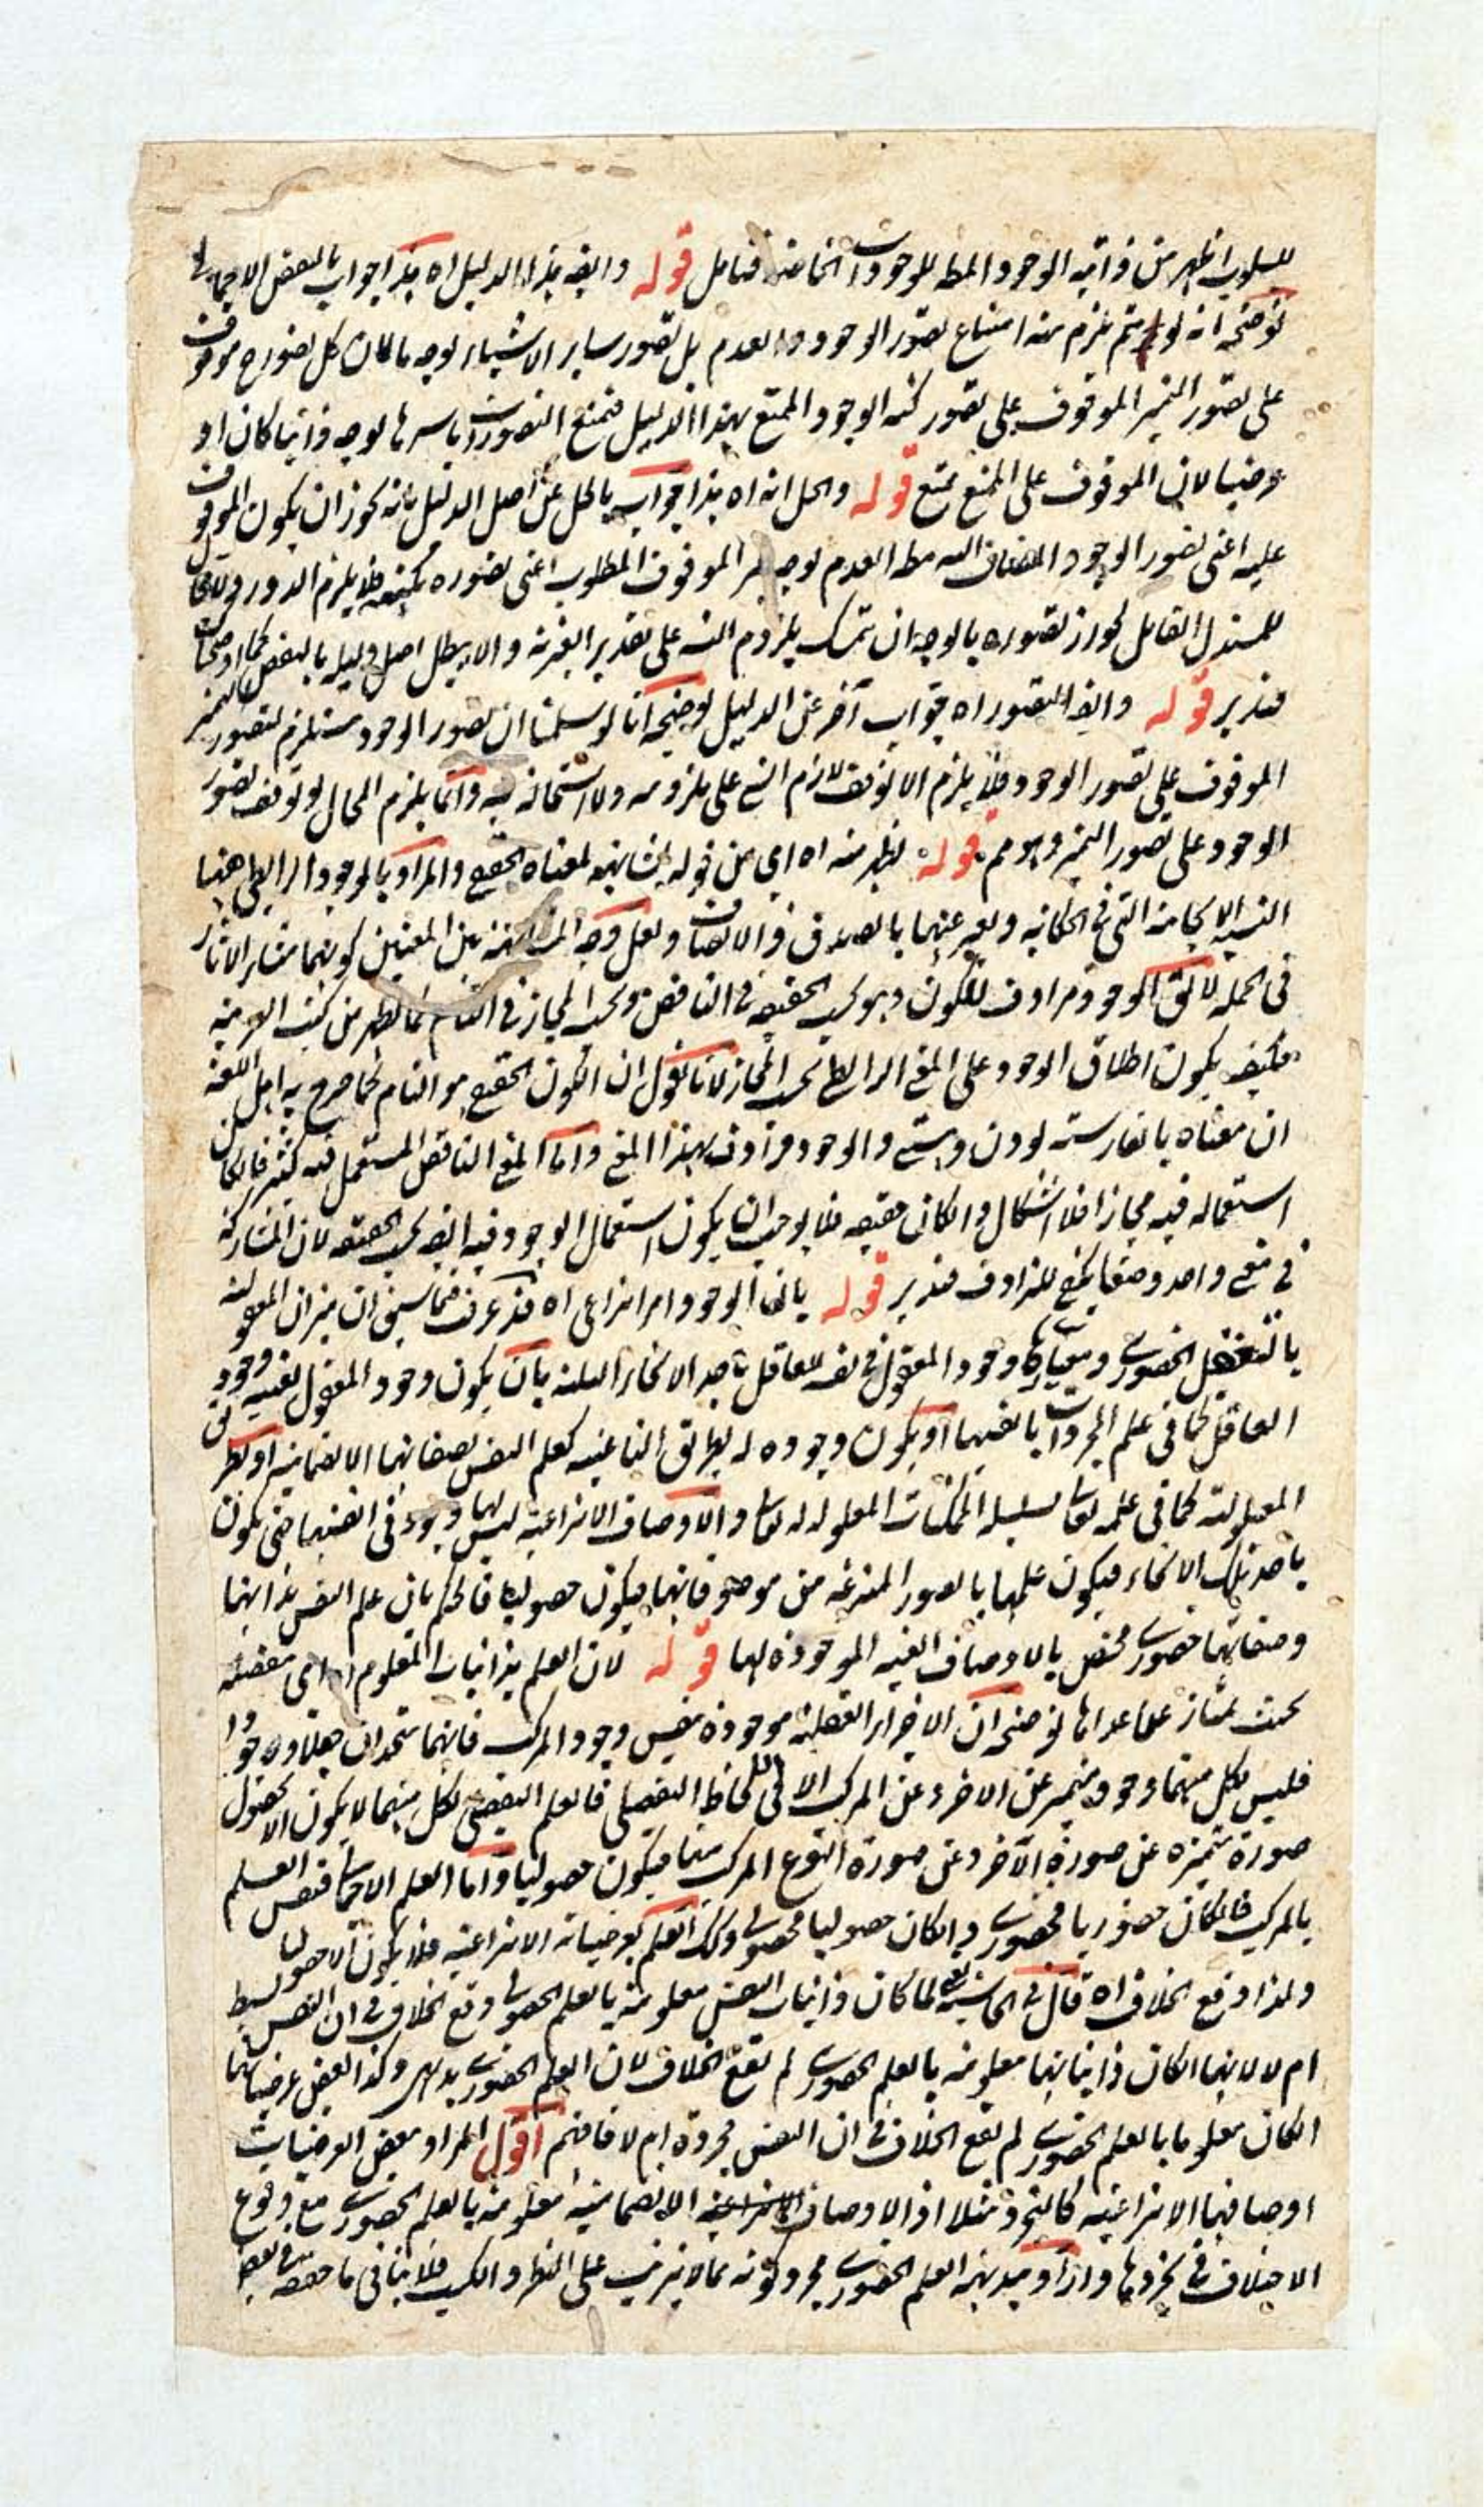 للسلوب اظهر من ذاتية الوجود المطـ للوجودات الخاصة فتامل قوله وايضـ هذا الدليل اه هذا جواب بالنقض الاجمالى
توضيحه انه لو تم يلزم منه امتناع تصور الوجود والعدم بل تصور ساير الاشياء بوجه ما لان كل تصور ح موقوف
على تصور التميز الموقوف على تصور كنه الوجود الممتنع بهذا الدليل فيمتنع التصورات باسرها بوجه ذاتيا كان او
عرضيا لان الموقوف على الممتنع ممتنع قوله والحل انه اه هذا جواب بالحل عن اصل الدليل بانه يجوز ان يكون الموقوف
عليه اعنى تصور الوجود المضاف اليه مطـ العدم بوجه الموقوف المطلوب اعنى تصوره بكنهه فلا يلزم الدور
للمستدل القائل بجواز تصوره بالوجه ان يتمسك بلزوم على تقدير والا يبطل اصل دليله بالنقض كما
فتدبر قوله وايضـ التصور اه جواب آخر عن الدليل توضيحه انا لو سلمنا ان تصور الوجود مستلزم لتصور التميز
الموقوف على تصور الوجود فلا يلزم الا توقف لازم الشئ على ملزومه ولا استحالة فيه وانما يلزم المحال لو توقف تصور
الوجود على تصور التميز وهو مم قوله يظهر منه اه اى من قوله لمعناه الحقيقى والمراد بالوجود الرابطى ههنا
النسبة الايجابية التى فى الحكاية ويعبر عنها بالصدق والاتصاف ولعل وجه بين المعنيين كونهما منشأ الآثار
فى الجملة لا يقـ الوجود مرادف للكون وهو بحسب الحقيقة فى الناقص وبحسب المجاز فى التام كما يظهر من كتب العربية
فكيف يكون اطلاق الوجود على المعنى الرابطى بحسب المجاز لانا نقول ان الكون الحقيقى هو التام كما صرح به اهل اللغة
ان معناه بالفارسية بودن وهستى والوجود مرادف بهذا المعنى واما المعنى الناقص المستعمل فيه كثيرا فان كان
استعماله فيه مجازا فلا اشكال وان كان حقيقة فلا يوجب ان يكون استعمال الوجود فيه ايضـ بحسب الحقيقة لان المشاركة
فى معنى واحد وضعا يكفى للترادف فتدبر قوله بانها الوجود امر انتزاعى اه قد عرفت فيما سبق ان ميزان المعلولية
بالتعقل الحضورى ومعياره وجود المعقول فى نفسه للعاقل باحد الانحاء الثلثة بان يكون وجود المعقول بعينه وجود
العاقل كما فى علم المجردات بانفسها او يكون وجوده له بطريق الناعتية كعلم النفس بصفاتها الانضمامية او بطريق
المعلولية كما فى علمه تعالى بسلسلة الممكنات المعلولة له تعالى والاوصاف الانتزاعية ليس لها وجود فى انفسها حتى يكون
باحد تلك الانحاء فيكون علمها بالصور المنتزعة من موصوفاتها فيكون حصوليا فالحكم بان علم النفس بذاتها
وصفاتها حضورى مختص بالاوصاف العينية الموجودة لها قوله لان العلم بذاتيات المعلوم اه اى مفصلة
بحيث تمتاز عما عداها توضيحه ان الاجزاء العقلية موجودة بنفس وجود المركب فانهما متحدان جعلا ووجودا
فليس لكل منهما وجود متميز عن الآخر وعن المركب الا فى اللحاظ التفصيلى فالعلم التفصيلى لكل منهما لا يكون الا بحصول
صورة متميزة عن صورة الآخر وعن صورة النوع المركب منهما فيكون حصوليا واما العلم الاجمالى فنفس العلم
بالمركب فان كان حضوريا فحضورى وان كان حصوليا فحصولى وكذا العلم بعرضياته الانتزاعية فلا يكون الا حصوليا
ولهذا وقع الخلاف اه قال فى الحاشية لما كان ذاتيات النفس معلومة بالعلم الحصولى وقع الخلاف فى ان النفس بسيط
ام لا لانها ان كان ذاتياتها معلومة بالعلم الحضورى لم يقع الخلاف لان العلم الحضورى بديهى وكذا بعض عرضياتها
ان كان معلوما بالعلم الحضورى لم يقع الخلاف فى ان النفس مجردة ام لا فافهم اقول المراد ببعض العرضيات
اوصافها الانتزاعية كالتجرد مثلا اذ الاوصاف الانضمامية معلومة بالعلم الحضورى مع وقوع
الاختلاف فى تجردها واراد ببديهة العلم الحضورى مجرد كونه مما لا يترتب على النظر والكسب فلا ينافى ما حققه فى بعض